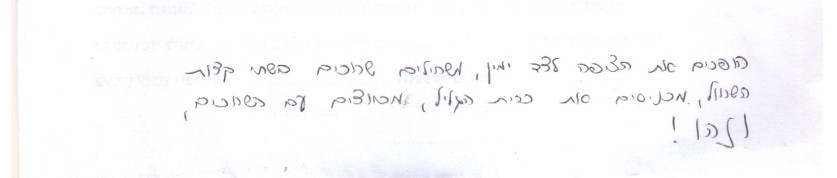 הופכים את הציפה לצד ימין, משחילים שרוכים בשתי קצוות
השרוול, מכניסים את כרית הגליל, מכווצים עם השרוכים,
וזהו!